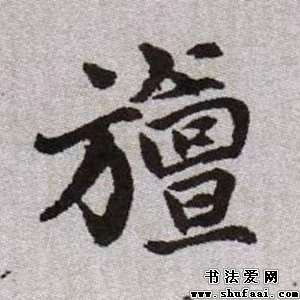 旜
书法爱网
www.shufaai.com